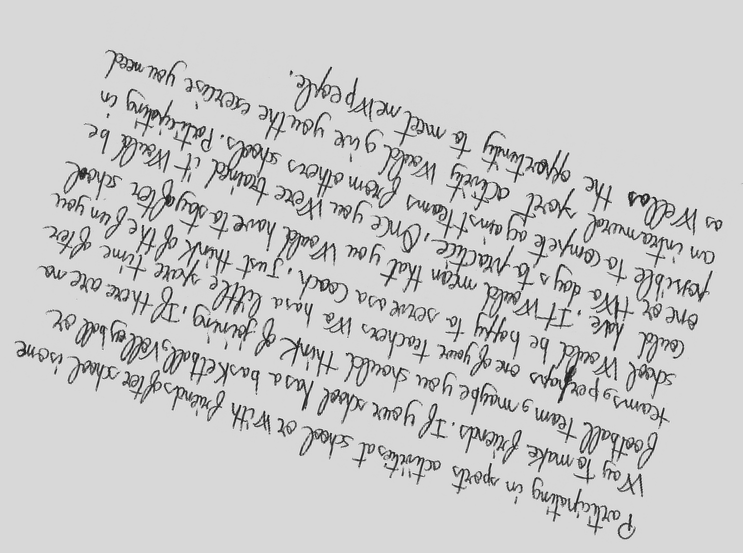 Participating in sports activities at school or with friends after school is one
Way to make friends. If your school has a basketball, Volleyball or
football team, maybe you should think of joining. If there are no
teams, perhaps one of your teachers Wo has a little spare time after
school Would be happy to serve as a Coach. Just think of the fun you
Could have. It Would mean that you Would have to stay after school
one or tWo days to practice. Once, you Were trained it Would be
possible to Compete against teams from others schools. Participating in
an intramural sport activity Would give you the exercise you need
as Well as the opportunity to meet neW people.